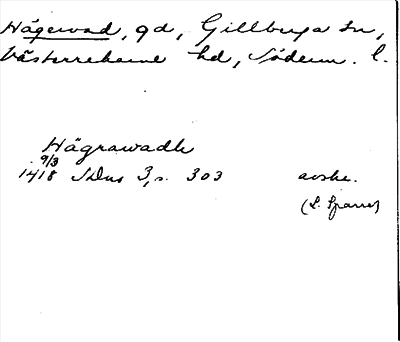 Hägerwad, gd, Gillberga sn,
Västerrekarne hd, Söderm. l.
Hägrawadh
9/3
1418 SDns 3, s. 303 avskr.
(L. Sparre)